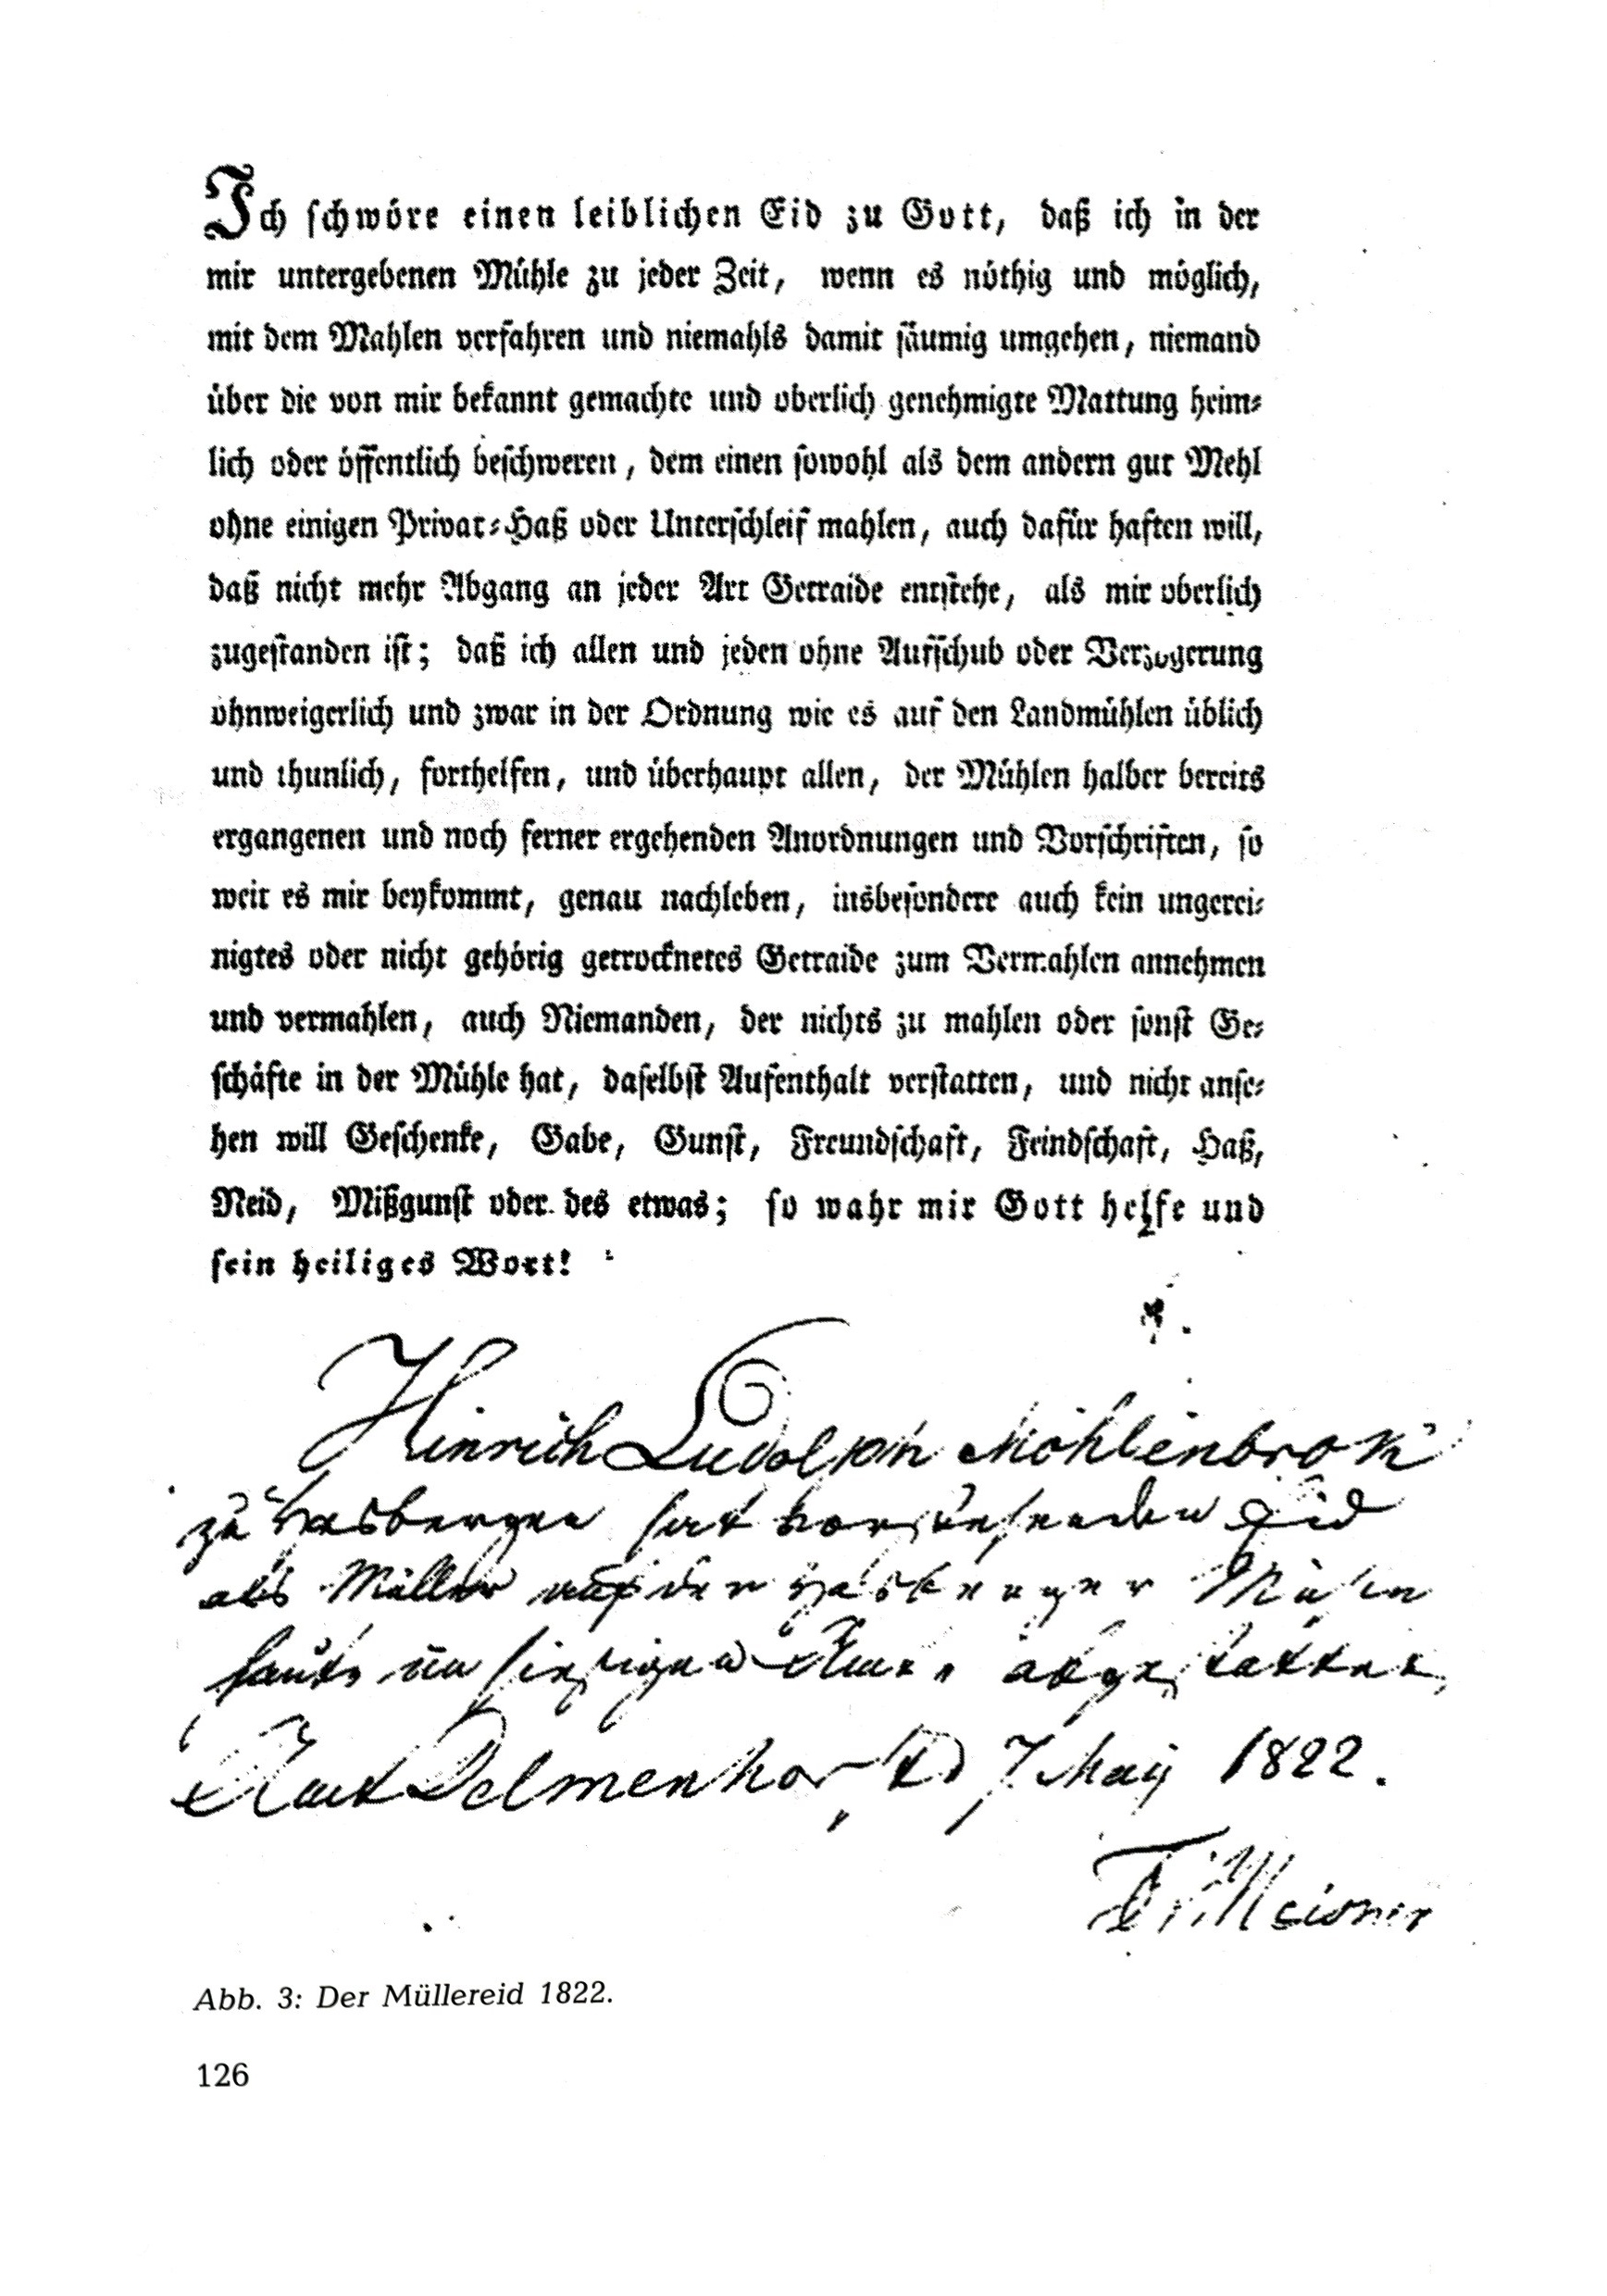 Ich schwöre einen leiblichen Eid zu Gott, daß ich in der
mir untergebenen Mühle zu jeder Zeit, wenn es nöthig und möglich,
mit dem Mahlen verfahren und niemahls damit säumig umgehen, niemand
über die von mir bekannt gemachte und oberlich genehmigte Mattung heim-
lich oder öffentlich beschweren, dem einen sowohl als dem andern gut Mehl
ohne einigen Privat-Haß oder Unterschleif mahlen, auch dafür haften will,
daß nicht mehr Abgang an jeder Art Getraide entstehe, als mir oberlich
zugestanden ist; daß ich allen und jeden ohne Aufschub oder Verzogerung
ohnweigerlich und zwar in der Ordnung wie es auf den Landmühlen üblich
und thunlich, forthelfen, und überhaupt allen, der Mühlen halber bereits
ergangenen und noch ferner ergehenden Anordnungen und Vorschriften, so
weit es mir beykommt, genau nachleben, insbesondere auch kein ungerei-
nigtes oder nicht gehörig getrocknetes Getraide zum Vermahlen annehmen
und vermahlen, auch Niemanden, der nichts zu mahlen oder sonst Ge-
schäfte in der Mühle hat, daselbst Aufenthalt verstatten, und nicht anse-
hen will Geschenke, Gabe, Gunst, Freundschaft, Feindschaft, Haß,
Neid, Mißgunst oder des etwas; so wahr mir Gott helfe und
sein heiliges Wort!
Hinrich Ludolph Möhlenbrok
zu Hasbergen hat vorstehenden Eid
als Müller auf der Hasberger Mühle
heute im hiesigen Amte abgestattet,
Amt Delmenhorst d 7 May 1822.
Meisner
Abb. 3: Der Müllereid 1822.
126